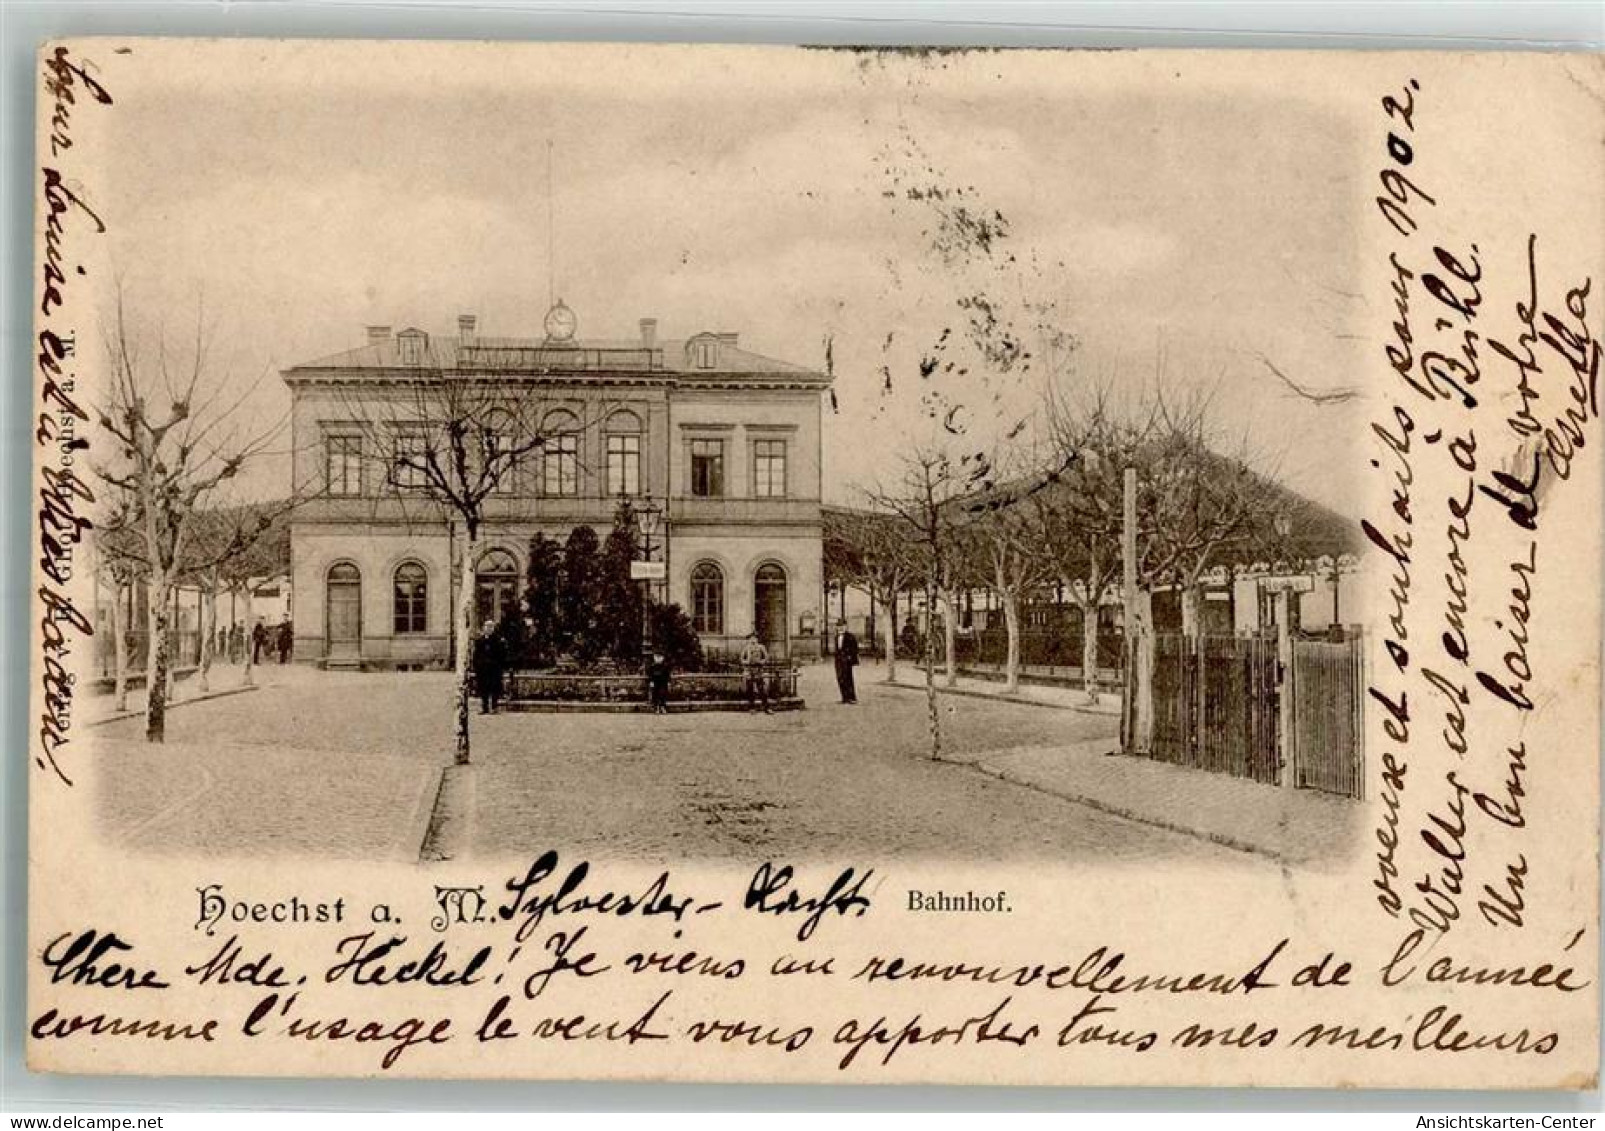 Hoechst a. M. Sylvester-Nacht. Bahnhof.
Chère Mde. Heckel! Je viens au renouvellement de l'année
comme l'usage le veut vous apporter tous mes meilleurs
voeux et souhaits pour 1902.
Walter est encore à Bühl.
Un bon baiser de votre
Gretha
Soeur Louise est à Wiesbaden.
Verlag Hoechst a. M.
Ansichtskarten-Center